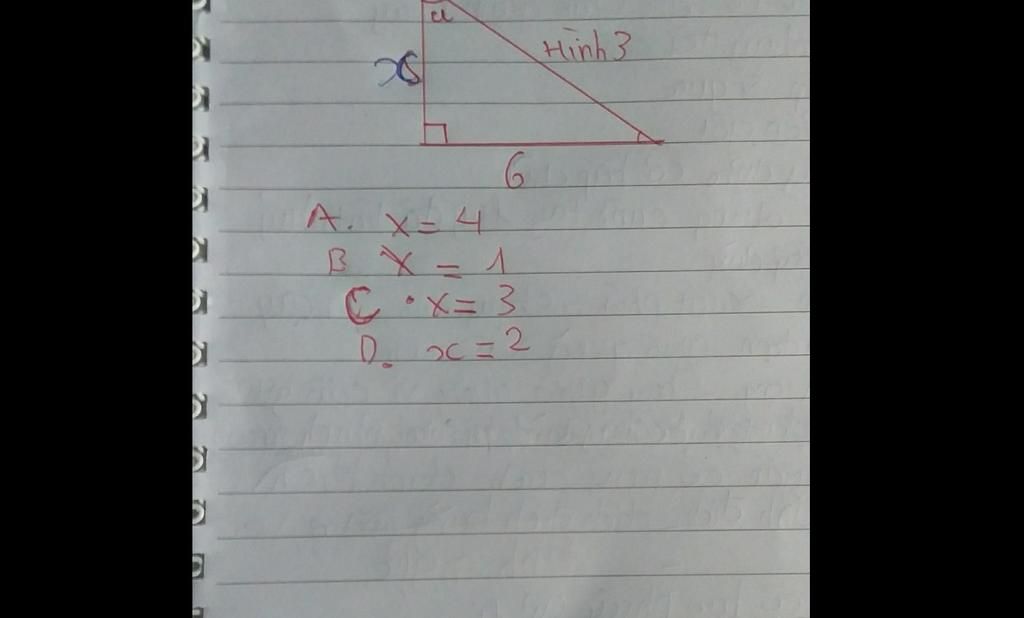 α
Hình 3
x
6
A. x = 4
B x = 1
C . x = 3
D. x = 2